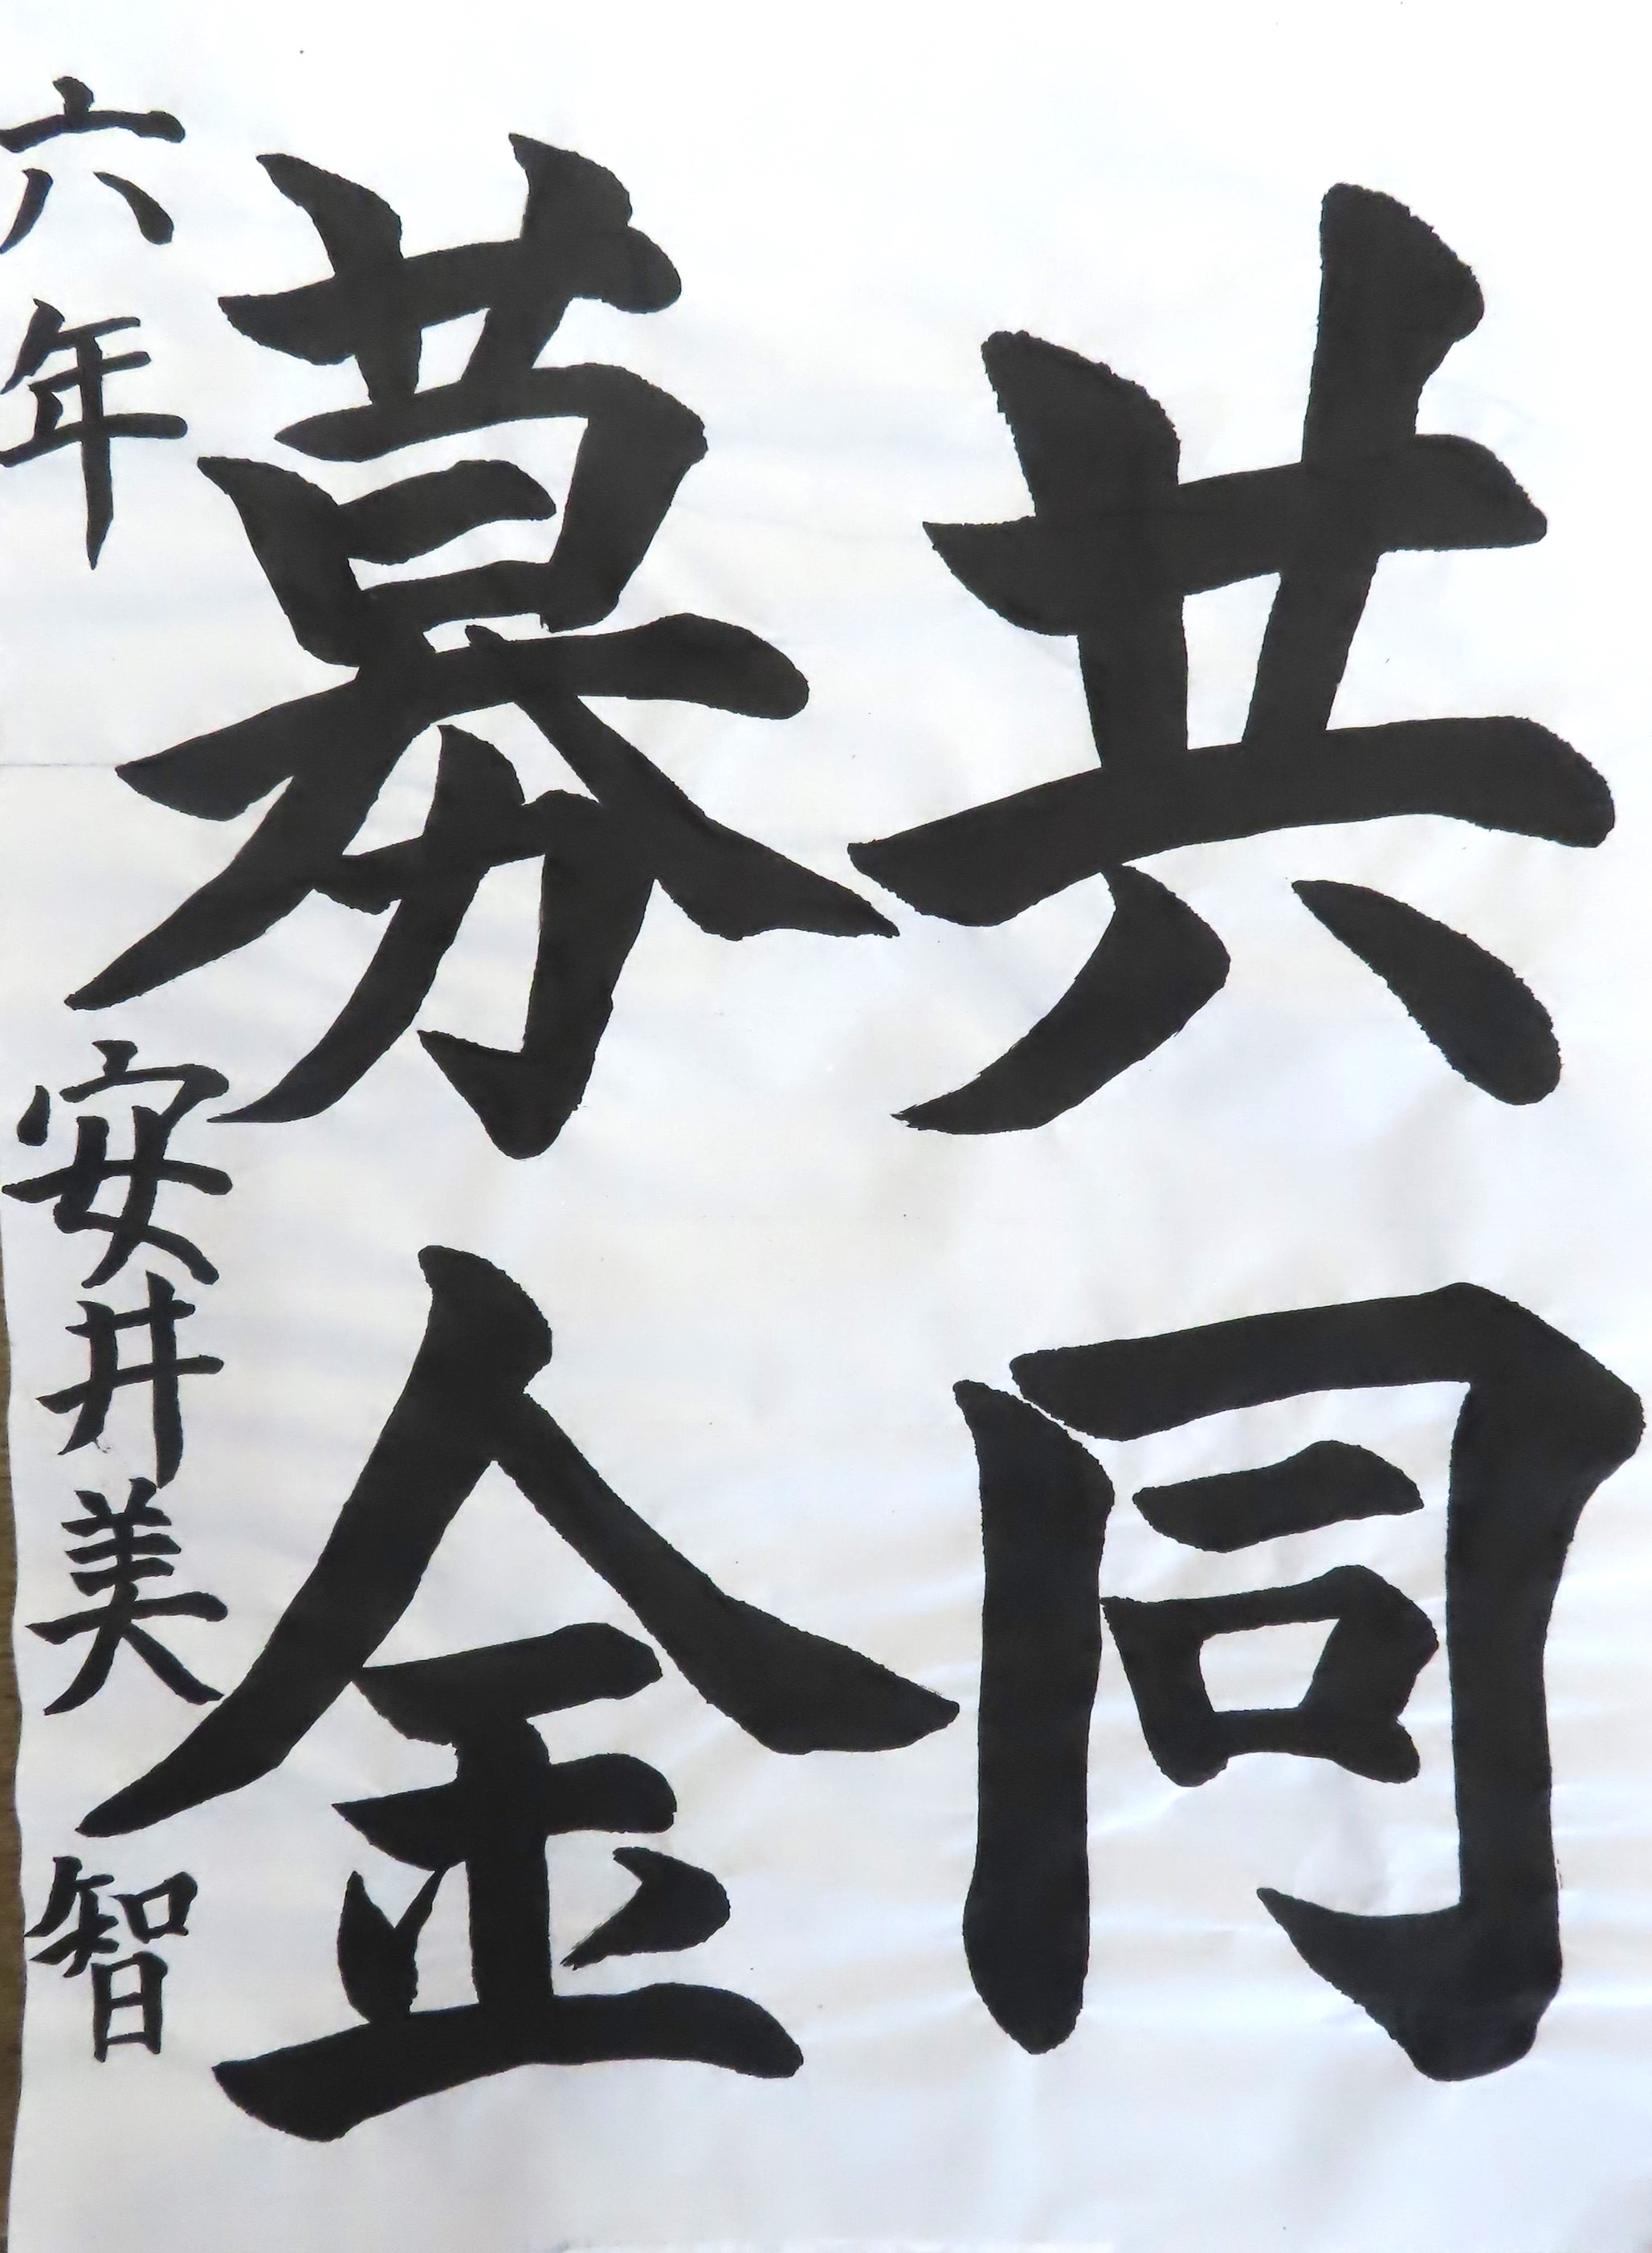 共同
募金
六年 安井美智